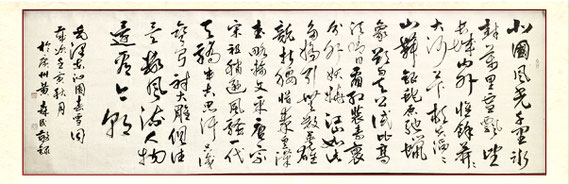 北國風光千里冰
封萬里雪飄望
長城內外惟餘莽莽
大河上下頓失滔滔
山舞銀蛇原馳蠟
象欲與天公試比高
須晴日看紅裝素裹
分外妖嬈江山如此
多嬌引無數英雄
競折腰惜秦皇漢
武略輸文采唐宗
宋祖稍遜風騷一代
天驕成吉思汗只識
彎弓射大雕俱往
矣數風流人物
還看今朝
毛澤東沁園春雪詞
歲次乙亥秋月
於廣州黃森民敬録